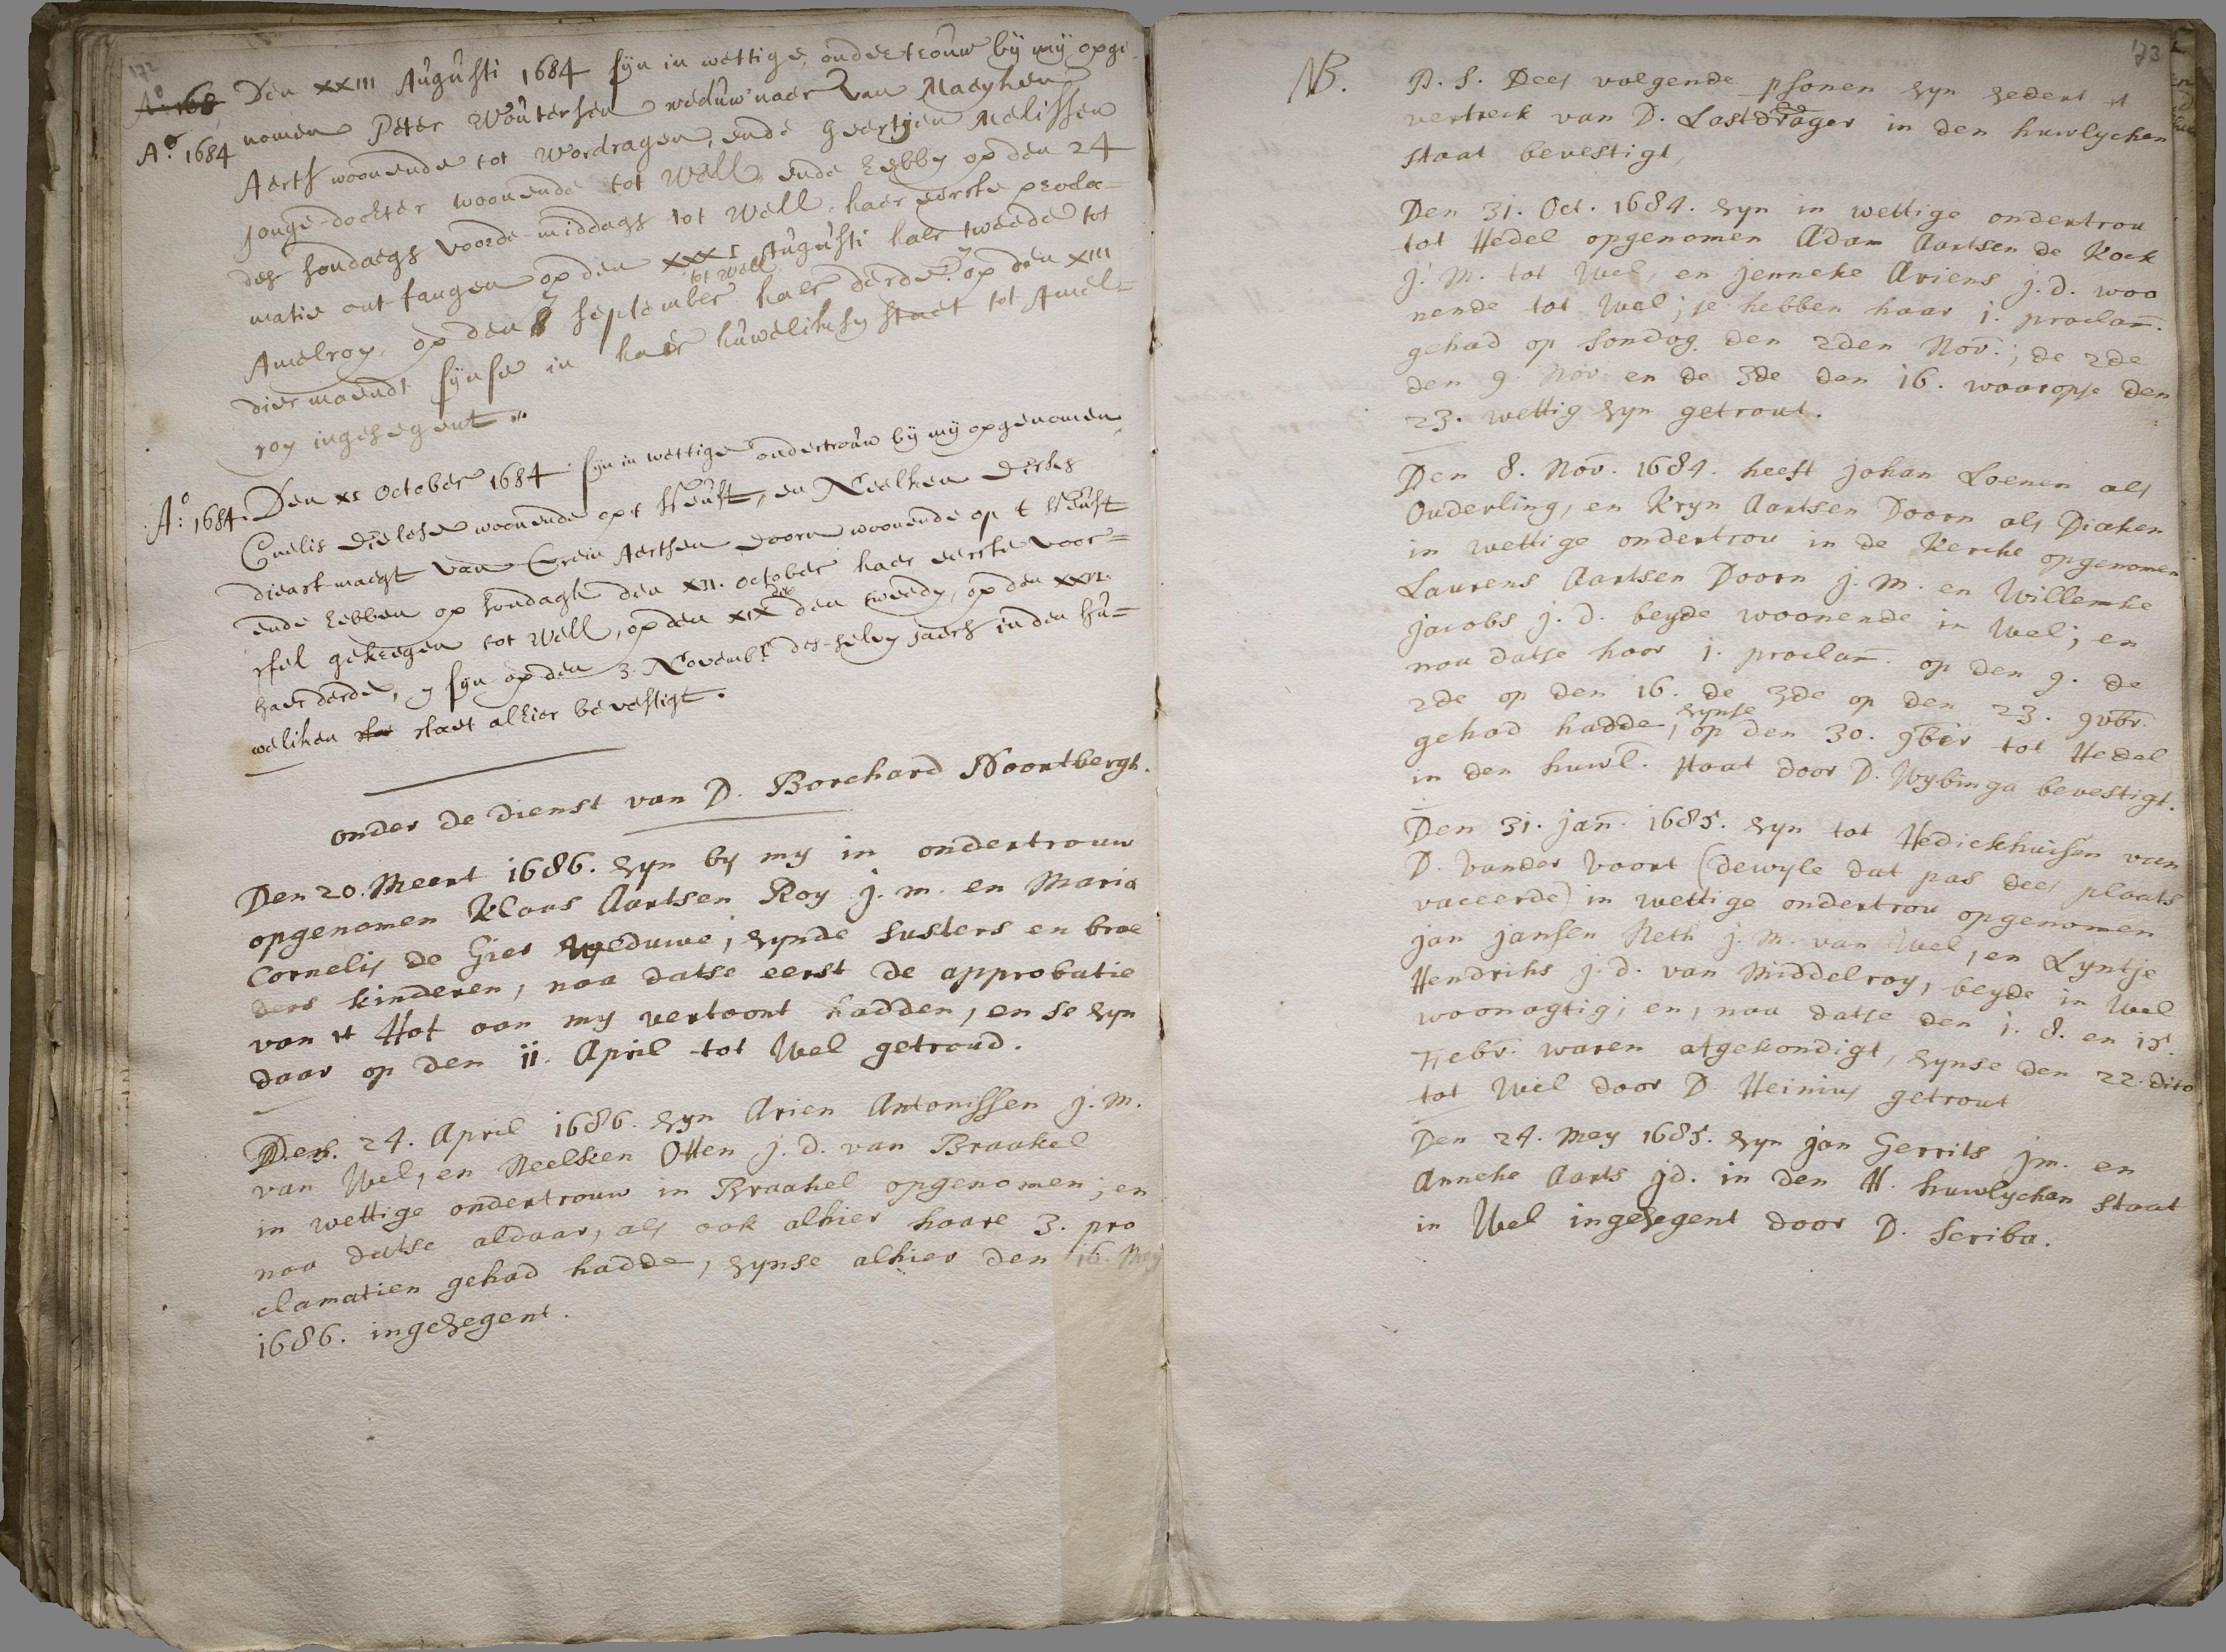 172
A.o 168
Den XXIII Augusti 1684 sijn in wettige, ondertrouw bij mij opge
A.o 1684 nomen Peter Woutersen weduwnaer van Maeyken
Aerts woonende tot Wordragen, ende Geertjen Melissen
jonge-dochter woonende tot Well, ende hebby op den 24
des sondaegs voorde-middags tot Well haer eerste procla=
matie ontfangen op den XXXI Augusti haer tweede tot
tot Well
Amelroy, op den 7 september haer derde: op den XIII
dier maendt sijnse in haer huwelikhsy staet tot Amel=
roy ingesegent.
A.o: 1684. Den XI October 1684 sijn in wettige ondertrouw bij mij opgenomen
Cnelis Dielese woonende op t Heust, en Neelken Dirks
dienst-maegt van Crein Aertsen Doorn woonende op t Heust
ende hebben op sondagh den XII. October haer eerste voor=
stel gekregen tot Well, op den XIX den tweedy, op den XXVI.
die
haer derde, y sijn op den 3. Novembr des-selvy jaers in den hu=
weliken staet alhier bevestigt.
onder de dienst van D. Borchard Noortbergh.
Den 20. Meert 1686. zyn by my in ondertrouw
opgenomen Klaas Aartsen Roy j. m. en Maria
Cornelis de Gier Weduwe, zynde susters en broe
ders kinderen, naa datse eerst de approbatie
van 't Hof aan my vertoont hadden, en se zyn
daar op den 11. April tot Wel getroud.
Den. 24. April 1686. zyn Arien Antonissen j. m.
van Wel, en Neelken Otten j. d. van Braakel
in wettige ondertrouw in Braakel opgenomen; en
naa datse aldaar, als ook alhier haare 3. pro
clamatien gehad hadde, zynse alhier den 16. Mey
1686. ingezegent.
173
NB. P. S. Dees volgende psonen zyn zedert 't
vertreck van D. Lastdrager in den huwlychen
staat bevestigt,
Den 31. Oct. 1684. zyn in wettige ondertrou
tot Hedel opgenomen Adam Aartsen de Kock
j. m. tot Wel, en Jenneke Ariens j. d. woo
nende tot Wel; se hebben haar 1. proclam.
gehad op Sondag den 2den Nov.; de 2de
den 9. Nov. en de 3de den 16. waaropse den
23. wettig zyn getrout.
Den 8. Nov. 1684. heeft Johan Loenen als
Ouderling, en Kryn Aartsen Doorn als Diaken
in wettige ondertrou in de Kerche opgenomen
Laurens Aartsen Doorn j. m. en Willemke
Jacobs j. d. beyde woonende in Wel; en
naa datse haar 1. proclam. op den 9. de
2de op den 16. de 3de op den 23. 9vbr.
zynse
gehad hadde, op den 30. 9ber tot Hedel
in den huwl. staat door D. Wybinga bevestigt.
Den 31. Jan. 1685. zyn tot Hedickhuisen van
D. vander Voort (dewyle dat pas dees plaats
vaceerde) in wettige ondertrou opgenomen
Jan Jansen Neth j. m. van Wel, en Lyntje
Hendriks j. d. van Middelroy, beyde in Wel
woonagtig; en, naa datse den 1. 8. en 15.
Febr. waren afgekondigt, zynse den 22. dito
tot Wel door D. Heinius getrout
Den 24. Mey 1685. zyn Jan Gerrits jm. en
Anneke Aarts jd. in den H. huwlychen staat
in Wel ingezegent door D. Scriba.